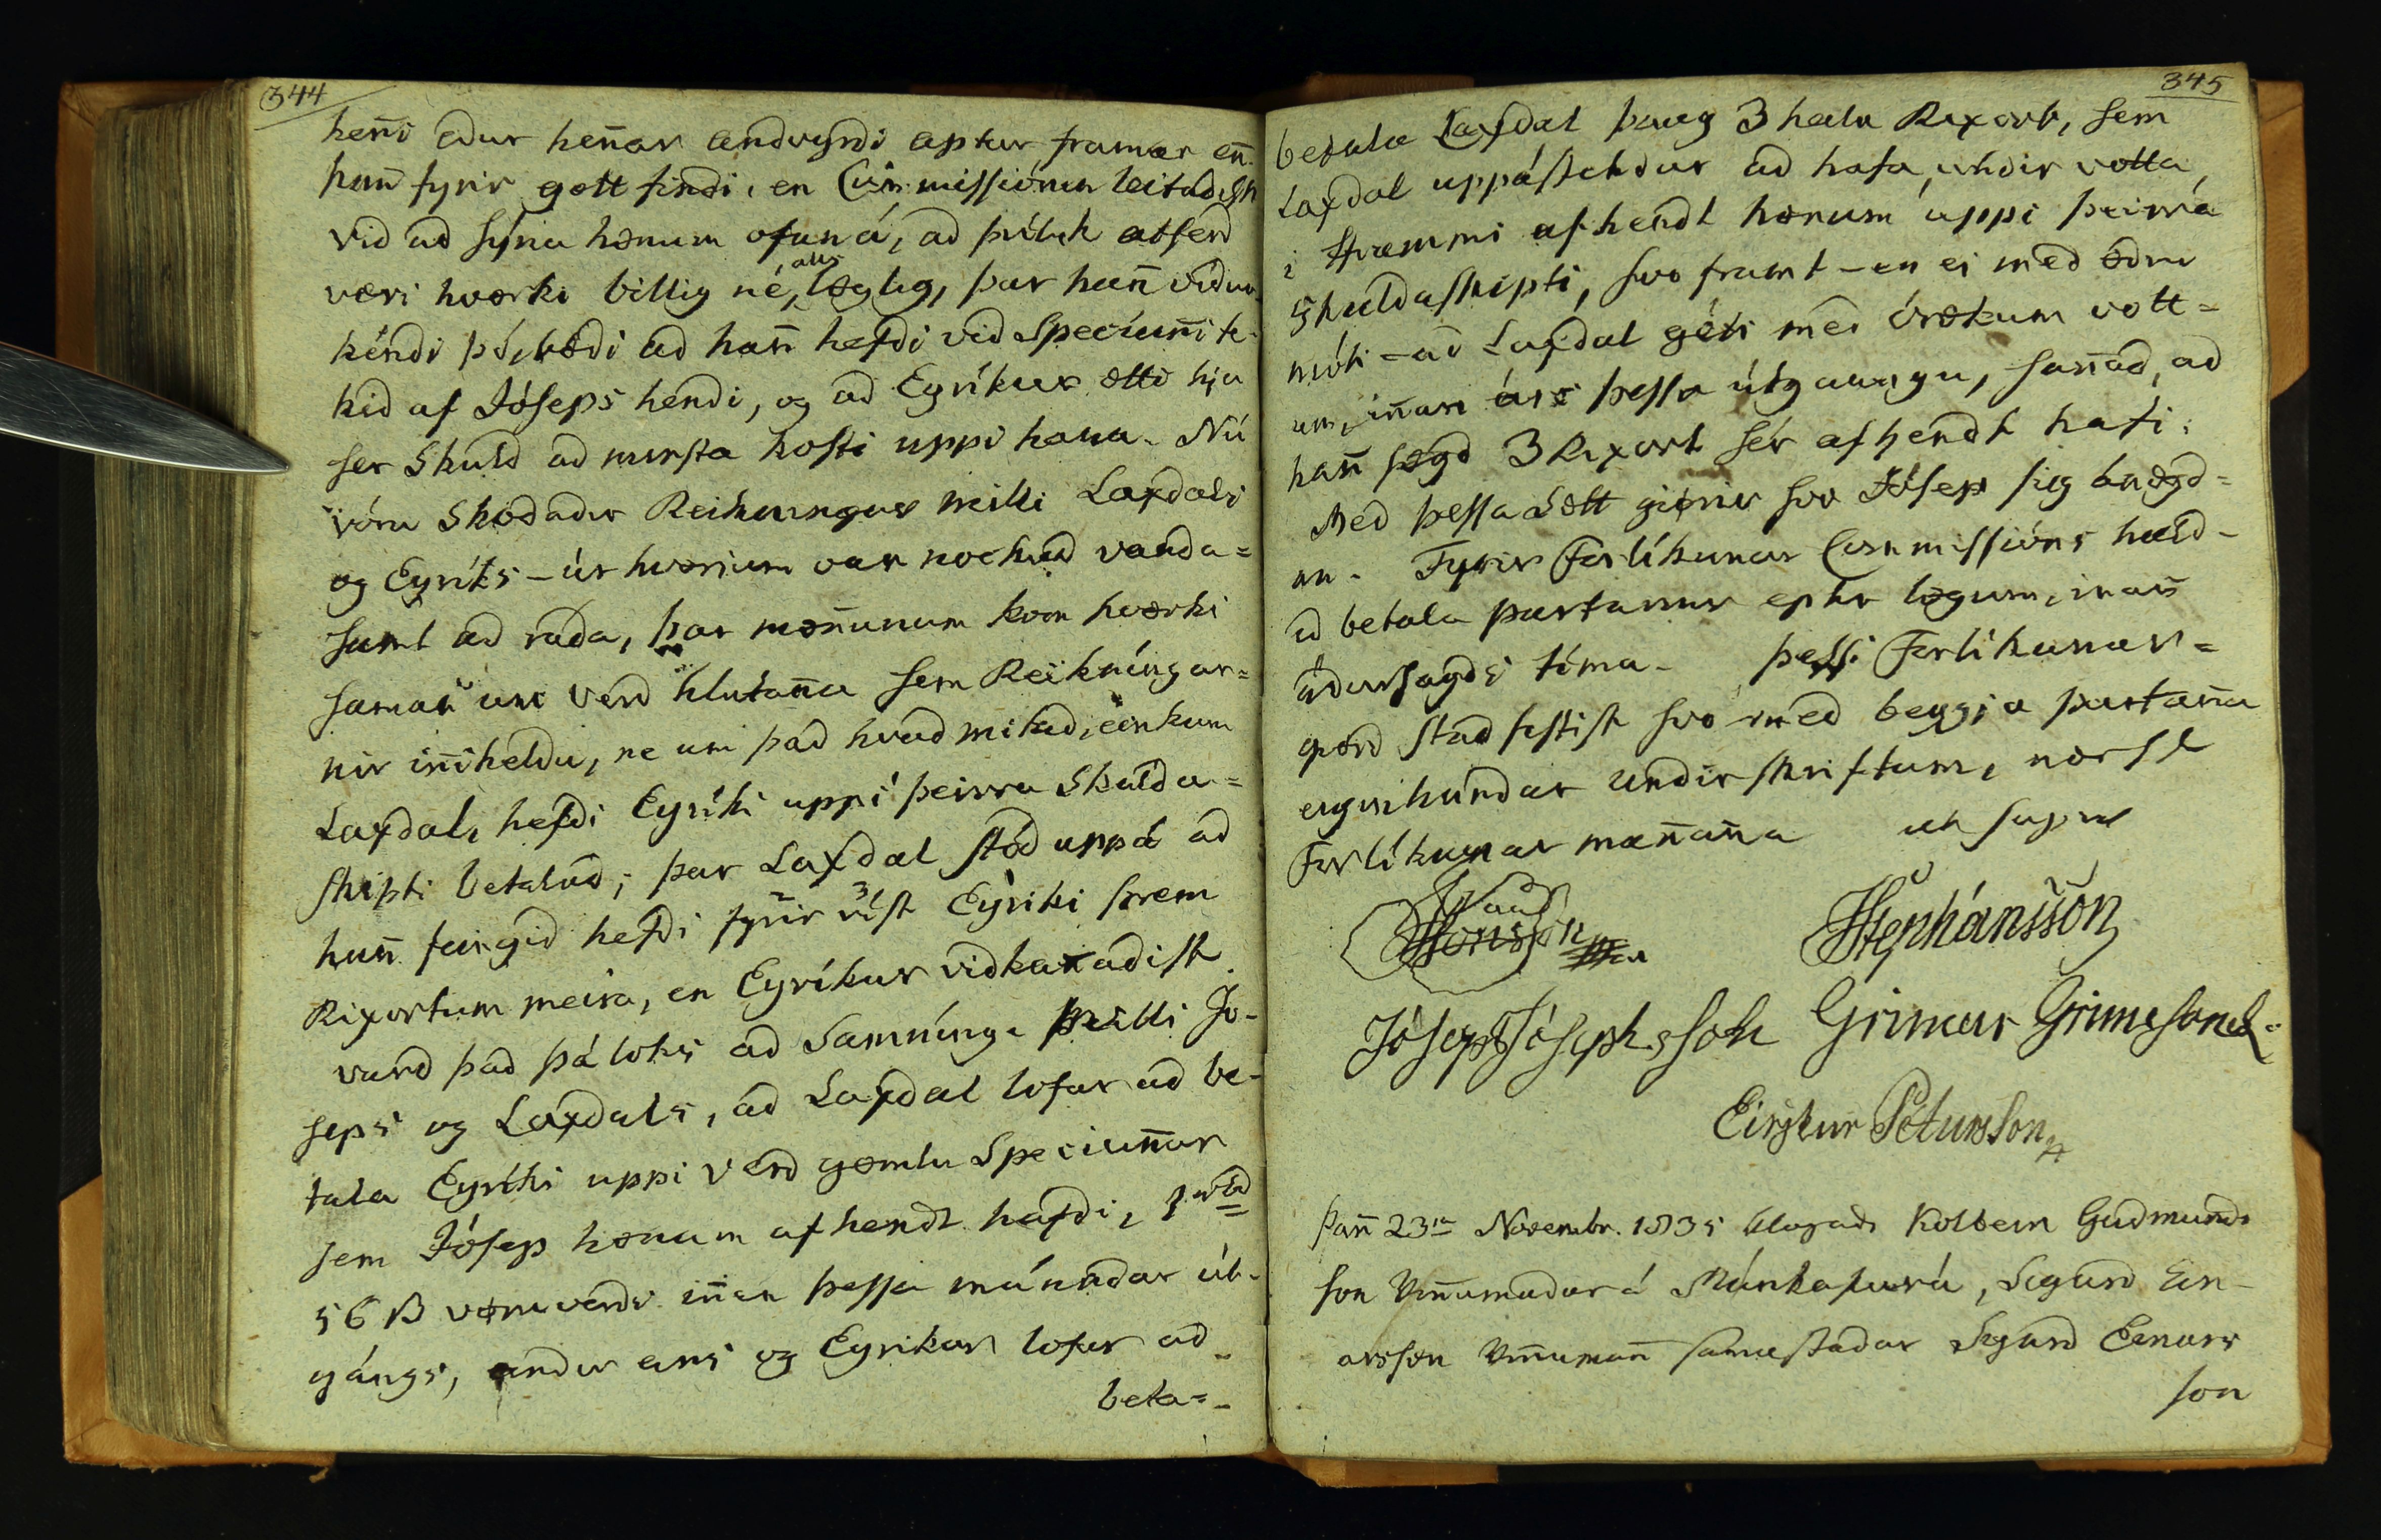 344
heñi edur heñar andvyrdi aptur framar eñ
hañ fyrir gott findi, en Com̄missiónen leitadist
vid ad sýna honum ofaná, ad þvílik adferd
væri hvorki billig né, alls löglig, þar hañ vidur-
kéndi þó, bædi ad hañ hefdi vid Speciuñi te-
kid af Jóseps hendi, og ad Eyríkur ætti hja
ser Skuld ad minsta kosti uppi hana. Nú
vóru Skodadir Reikningar milli Laxdals
og Eyríks - úr hvorium var nockud vanda=
samt ad ráda, þar möñunum kom hvorki
samañ um verd hlutaña sem Reikníngar=
nir iñihéldu, ne um þad hvad mikid, einkum
Laxdal, hefdi Eyríki uppi þeirra Skulda=
skipti betalad; þar Laxdal stód uppá ad
hañ feingid hefdi fyrir víst Eyríki þrem
Rixortum meira, en Eyríkur vidkañadist.
vard þad þá loks ad Samníngi milli Jó-
seps og Laxdals, ad Laxdal lofar ad be-
tala Eyríki uppi verd gömlu Speciuñar
sem Jósep honum afhendt hafdi, 1 rbd
56 ß vöruverds iñan þessa mánadar út-
gángs, undir eins og Eyrikur lofar ad
beta=
345
betala Laxdal þaug 3 heilu Rixort, sem
Laxdal uppástendur ad hafa, undir votta,
i Skemmi afhendt honum uppi þeirra
Skuldaskipti, svo framt - en ei med ödru
móti - ad Laxdal géti med órækum vott=
um, iñan árs þessa útgaungu, sañad, ad
hañ sögd 3 Rixort sér afhendt hafi.
Med þessa Sætt giörir svo Jósep sig ánægd=
an. Fyrir Forlíkunar Commissións hald-
id betala partarnir eptir lögum, iñañ
ádursagds tíma. þessi Forlíkunar=
giörd stadfestist svo med beggia partaña
eiginhandar undirskriftum, nærst
Forlíkunar mañaña ut supra
Stephánsson
Jósep Jósephsson Grimur Grimesson
Eirikur Peturs Son
Þañ 23ia Novembr. 1835 klagade Kolbein Gudmunds
son Viñumadur á Múnkaþverá, Sigurd Ein-
arsson Viñumañ samastadar Sigurd Einars
son